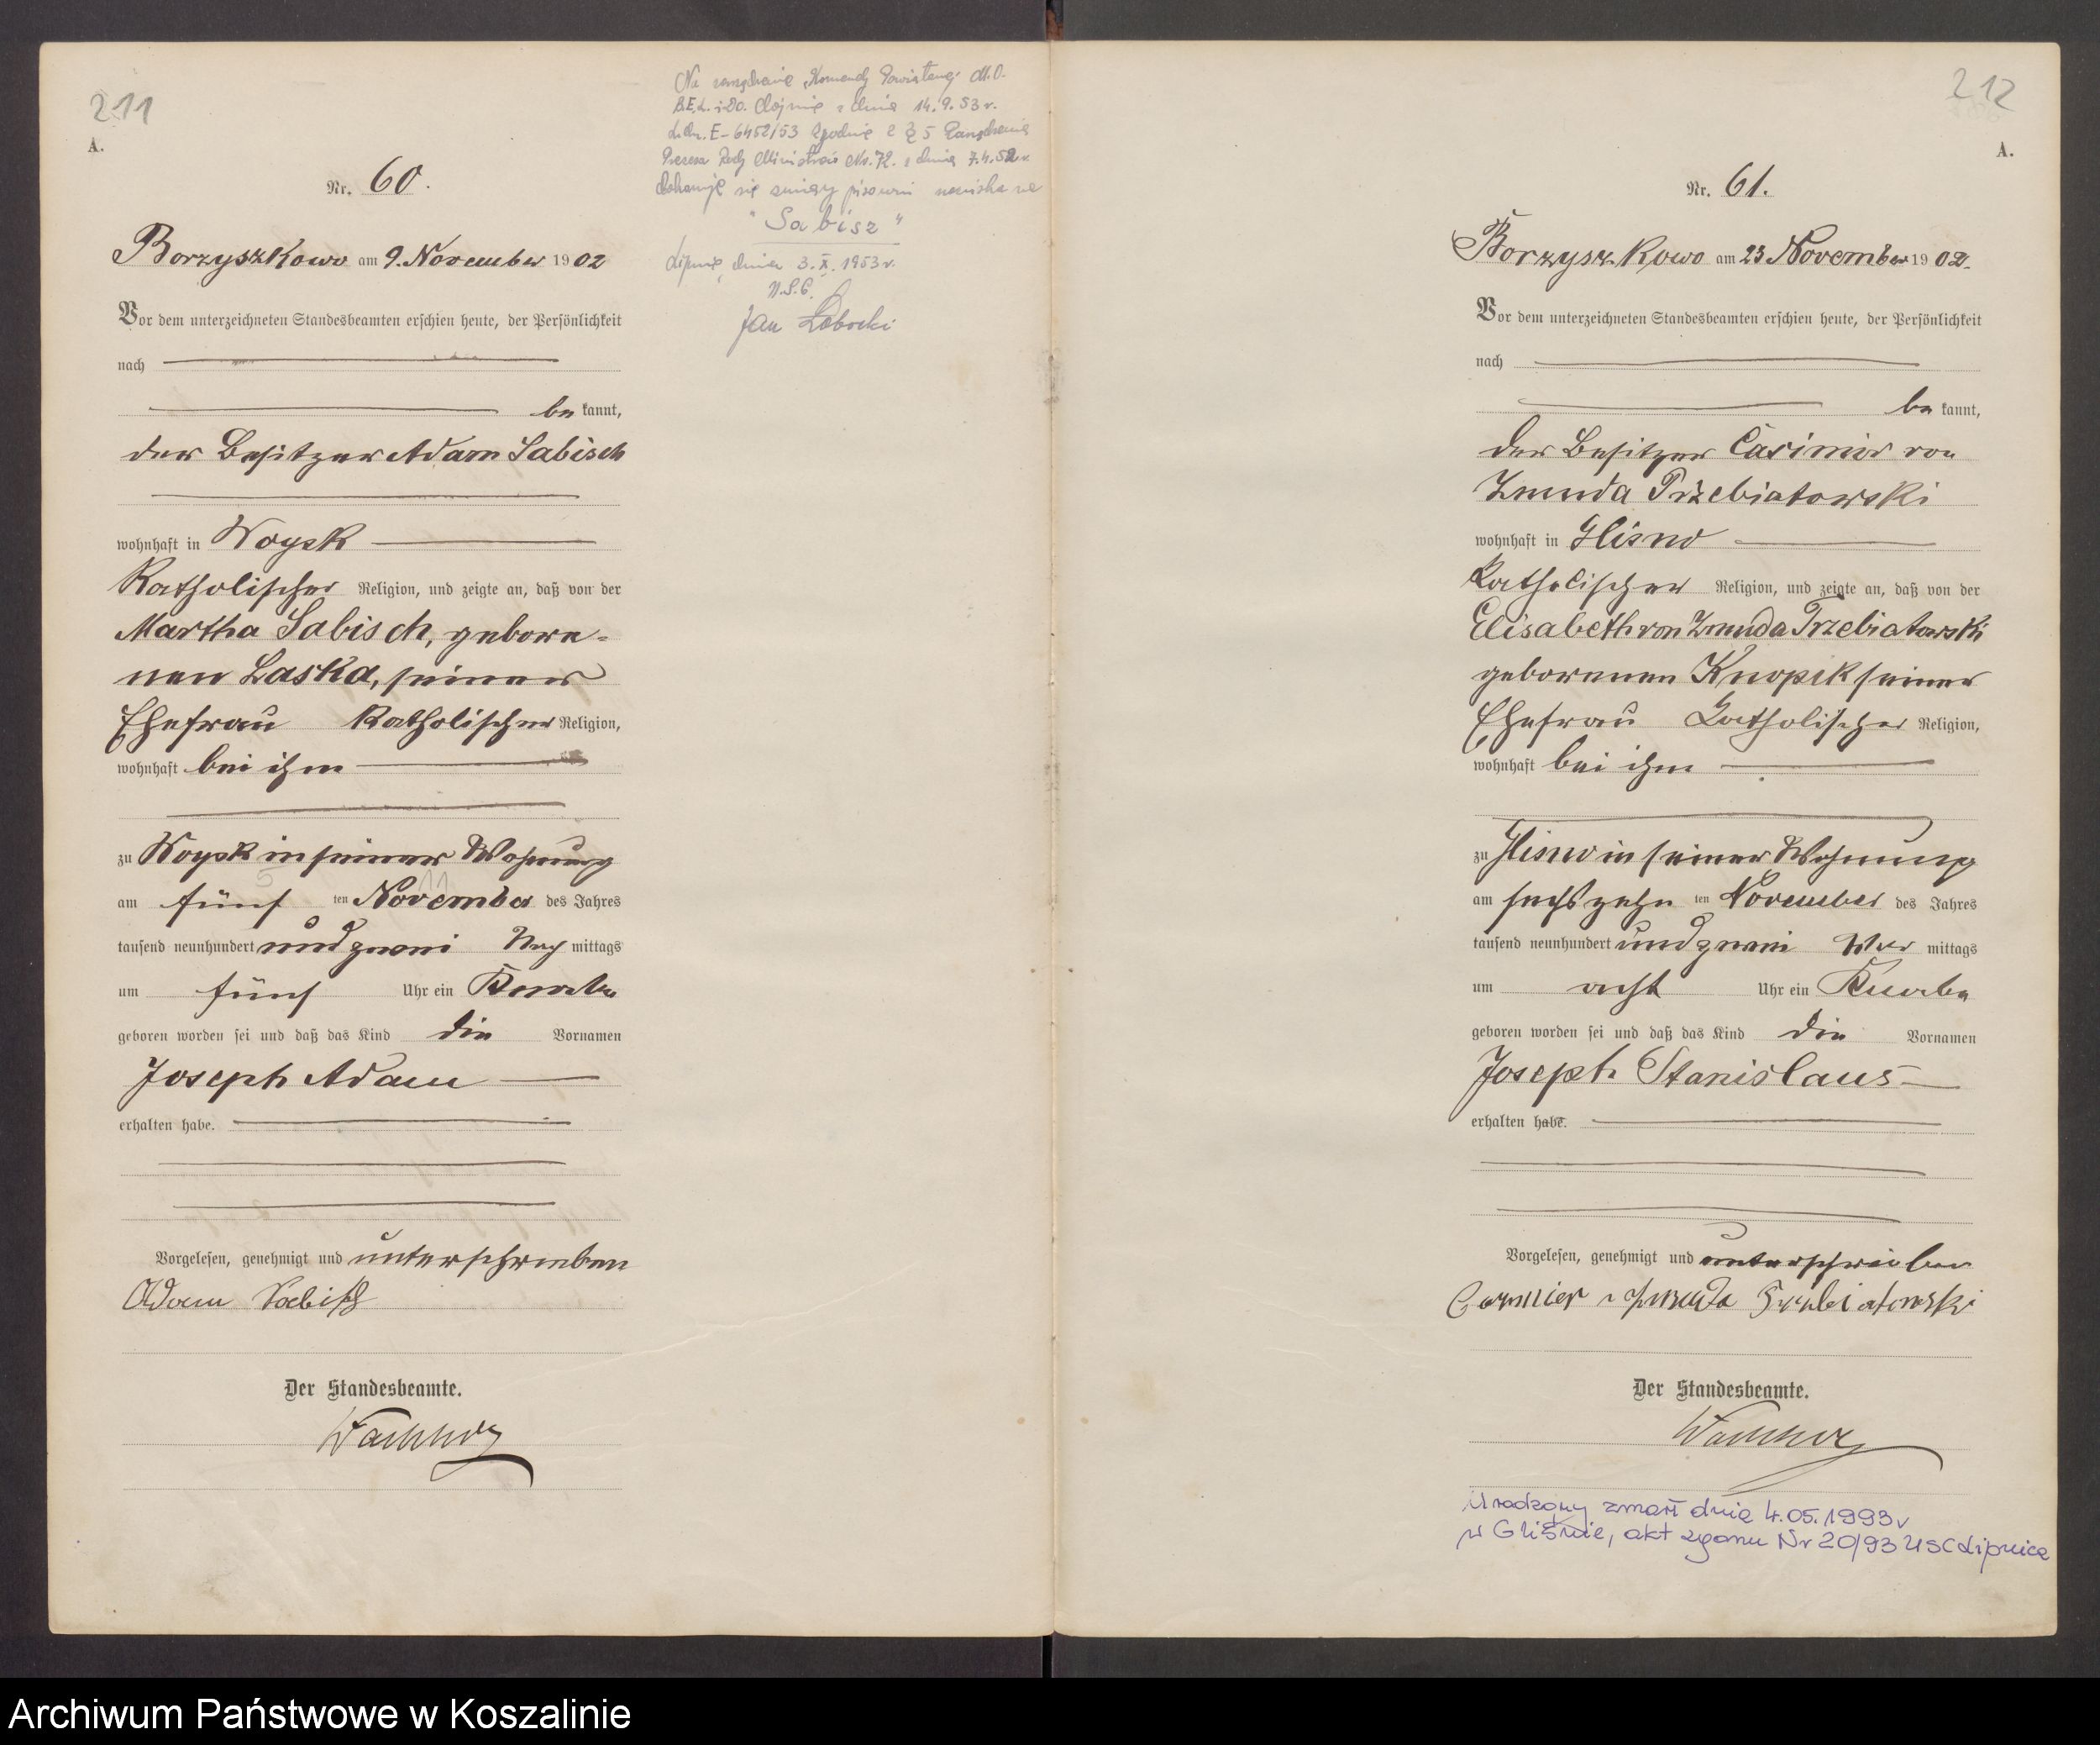 211
A.
Nr. 60.
Borzyszkowo am 9. November 1902
Vor dem unterzeichneten Standesbeamten erschien heute, der Persönlichkeit
nach
be kannt,
der Besitzer Adam Sabisch
wohnhaft in Woysk
Katholischer Religion, und zeigte an, daß von der
Martha Sabisch, gebore-
nen Laska, seiner
Ehefrau Katholischer Religion,
wohnhaft bei ihm
zu Woysk in seiner Wohnung
am fünf ten November des Jahres
tausend neunhundert und zwei Nach mittags
um fünf Uhr ein Knabe
geboren worden sei und daß das Kind die Vornamen
Joseph Adam
erhalten habe.
Vorgelesen, genehmigt und unterschrieben
Adam Sabisch
Der Standesbeamte.
Na zarządzenie Komendy Powiatowej M.O.
z dnia 14.9.53 r.
E-6452/53 zgodnie z § 5 Zarządzenia
Prezesa Rady Ministrów Nr. 72. z dnia 7.4.52 r.
dokonuje się zmiany pisowni nazwiska na
"Sabisz"
dnia 3. X. 1953 r.
U.S.C.
Jan
212
A.
Nr. 61.
Borzyszkowo am 23 November 1902.
Vor dem unterzeichneten Standesbeamten erschien heute, der Persönlichkeit
nach
be kannt,
der Besitzer Casimir von
Zmuda Trzebiatowski
wohnhaft in Glisno
Katholischer Religion, und zeigte an, daß von der
Elisabeth von Zmuda Trzebiatowski
geborenen Knopik seiner
Ehefrau Katholischer Religion,
wohnhaft bei ihm
zu Glisno in seiner Wohnung
am sechszehn ten November des Jahres
tausend neunhundert und zwei Vor mittags
um acht Uhr ein Knabe
geboren worden sei und daß das Kind die Vornamen
Joseph Stanislaus
erhalten habe.
Vorgelesen, genehmigt und unterschrieben
Zmuda Trzebiatowski
Der Standesbeamte.
Urodzony zmarł dnia 4.05.1993 r
w Gliśnie, akt zgonu Nr 20/93 USC Lipnica
Archiwum Państwowe w Koszalinie